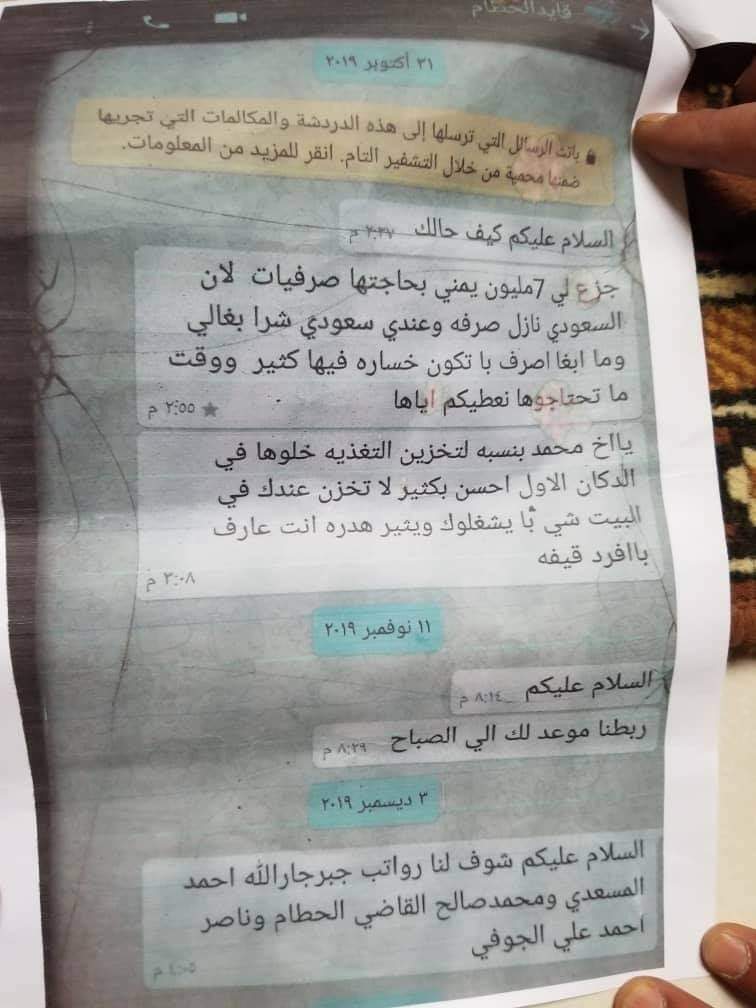 قايدالحطام
٣١ أكتوبر ٢٠١٩
باتت الرسائل التي ترسلها إلى هذه الدردشة والمكالمات التي تجريها
ضمنها محمية من خلال التشفير التام. انقر للمزيد من المعلومات.
السلام عليكم كيف حالك
جزع لي 7مليون يمني بحاجتها صرفيات لان
السعودي نازل صرفه وعندي سعودي شرا بغالي
وما ابغا اصرف با تكون خساره فيها كثير ووقت
ما تحتاجوها نعطيكم اياها
٢:٥٥ م
يااخ محمد بنسبه لتخزين التغذيه خلوها في
الدكان الاول احسن بكثير لا تخزن عندك في
البيت شي با يشغلوك ويثير هدره انت عارف
باافرد قيفه
٣:٠٨ م
١١ نوفمبر ٢٠١٩
السلام عليكم ٨:١٤ م
ربطنا موعد لك الي الصباح ٨:٢٩ م
٣ ديسمبر ٢٠١٩
السلام عليكم شوف لنا رواتب جبرجارالله احمد
المسعدي ومحمدصالح القاضي الحطام وناصر
احمد علي الجوفي